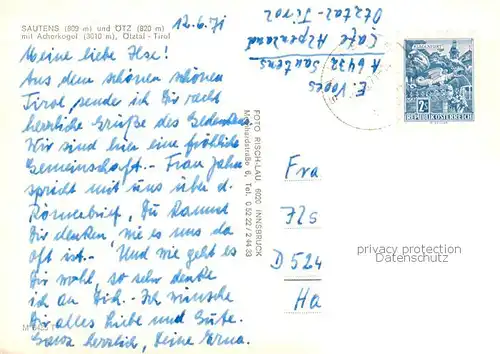 SAUTENS (809 m) und ÖTZ (820 m)
mit Acherkogel (3010 m), Ötztal - Tirol
12.6.71
Meine liebe Ilse!
Aus dem schönen schönen
Tirol sende ich Dir recht
herzliche Grüße des Gedenkens.
Wir sind hier eine fröhliche
Gemeinschaft. Frau Jahn
spricht mit uns über d.
Römerbrief, Du kannst
Dir denken, wie es uns da
oft ist. – Und wie geht es
Dir wohl, so sehr denke
ich an Dich. – Ich wünsche
Dir alles Liebe und Gute.
Ganz herzlich, Deine Erna.
M
FOTO RISCH-LAU, 6020 INNSBRUCK
6, Tel. 0 52 22 / 2 44 33
E. Voges
A 6432 Sautens
Café Alpenland
Ötztal-Tirol
2S
REPUBLIK ÖSTERREICH
Fra
Ils
D 524
Ha
privacy protection
Datenschutz